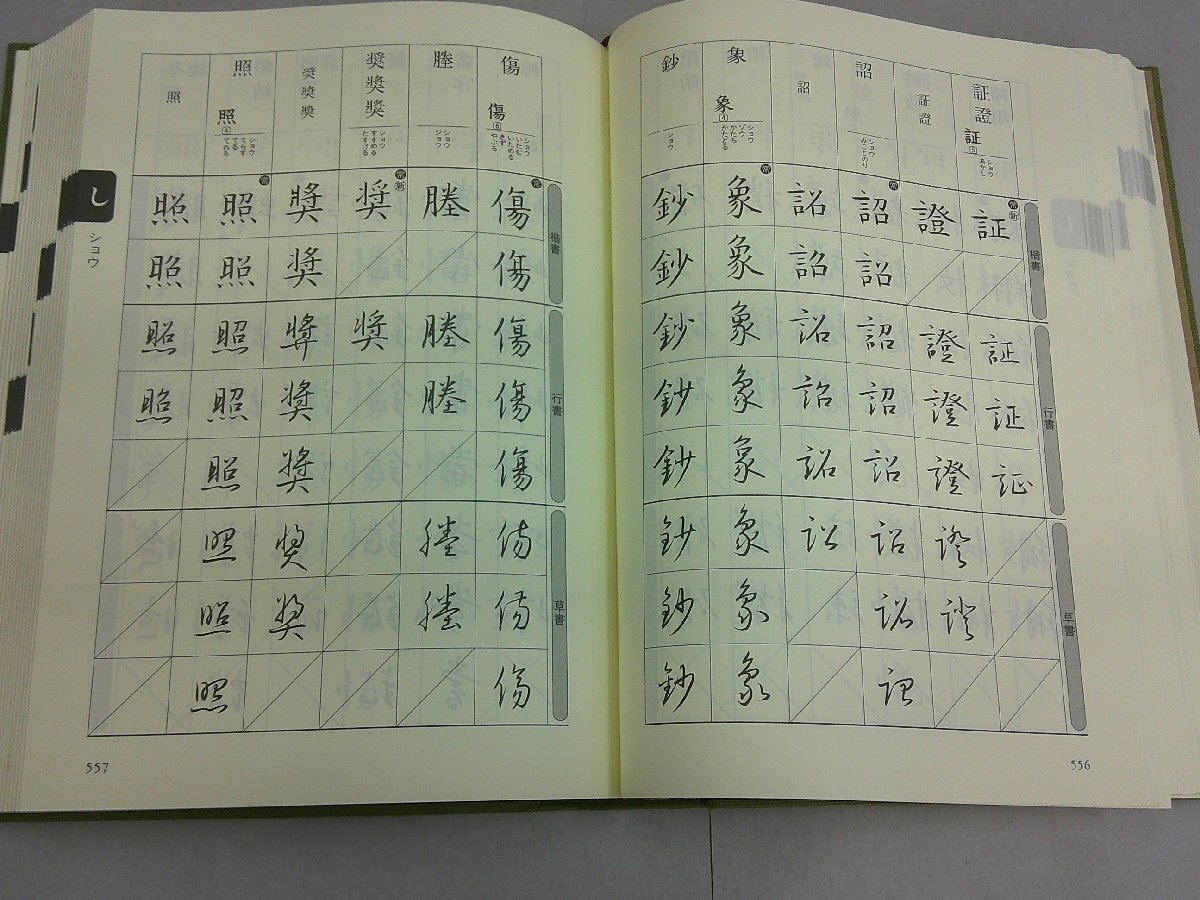 証證
証⑤
ショウ
あかし
証證
詔
ショウ
みことのり
詔
象
象④
ショウ
ゾウ
かたち
かたどる
鈔
ショウ
楷書
常 新
証
證
常
詔
詔
常
象
鈔
詔
詔
象
鈔
行書
証
證
詔
詔
象
鈔
証
證
詔
詔
象
鈔
証
證
詔
詔
象
鈔
草書
證
詔
詔
象
鈔
證
詔
象
鈔
詔
象
鈔
556
傷
傷⑥
ショウ
いたむ
いためる
きず
やぶる
塍
ショウ
ジョウ
奨奬獎
ショウ
すすめる
たすける
奨奬獎
照
照④
ショウ
てらす
てる
てれる
照
楷書
常
傷
塍
常 新
奨
奬
常
照
照
傷
奬
照
照
行書
傷
塍
奨
奬
照
照
傷
塍
奬
照
照
傷
奬
照
草書
傷
塍
奬
照
傷
塍
奬
照
傷
照
し
ショウ
557